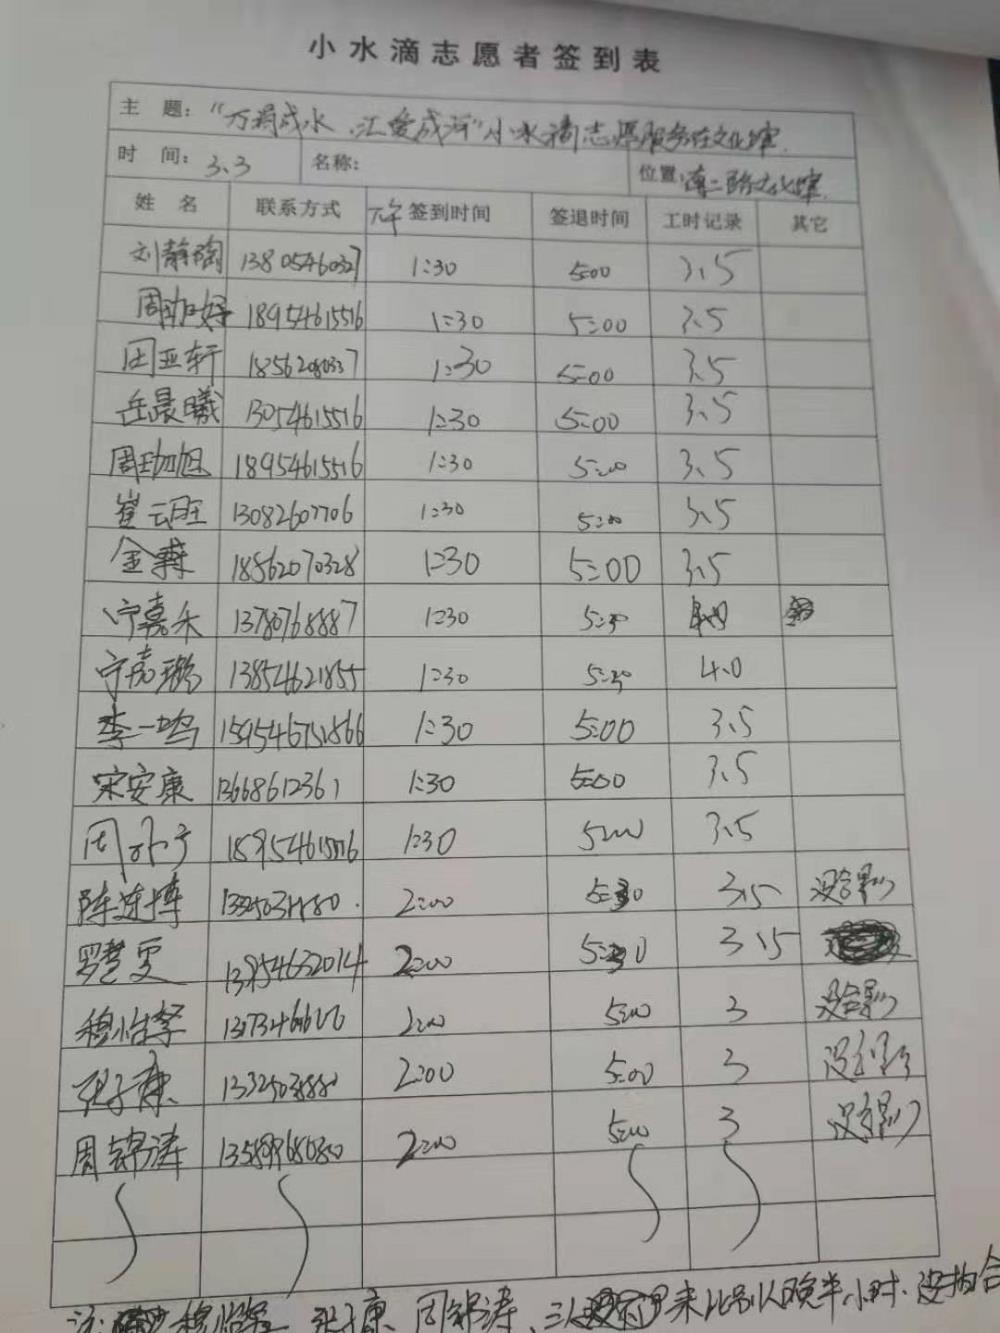 小水滴志愿者签到表
主 题： 成水，汇爱成河"小水滴志愿服务在文化
时 间：3.3 名称： 位置：
姓 名 联系方式 下午 签到时间 签退时间 工时记录 其它
刘静 13805460327 1:30 5:00 3.5
周 18954615516 1:30 5:00 3.5
田亚轩 1:30 5:00 3.5
岳晨曦 13054615516 1:30 5:00 3.5
周旭 18954615516 1:30 5:00 3.5
崔云旺 13082607706 1:30 5:00 3.5
金 18562070328 1:30 5:00 3.5
宁嘉禾 13780768887 1:30 5:30
宁嘉璐 13854621855 1:30 5:30 4.0
李一鸣 1:30 5:00 3.5
宋安康 13668612361 1:30 5:00 3.5
1:30 5:00 3.5
陈连博 2:00 5:30 3.5 没合影
罗慧雯 13954632014 2:00 5:30 3.5
穆怡 2:00 5:00 3 没合影
张子康 2:00 5:00 3 没合影
周锦涛 2:00 5:00 3 没合影
注： 穆怡 张子康、周锦涛、三人 来比别人晚半小时、没拍合